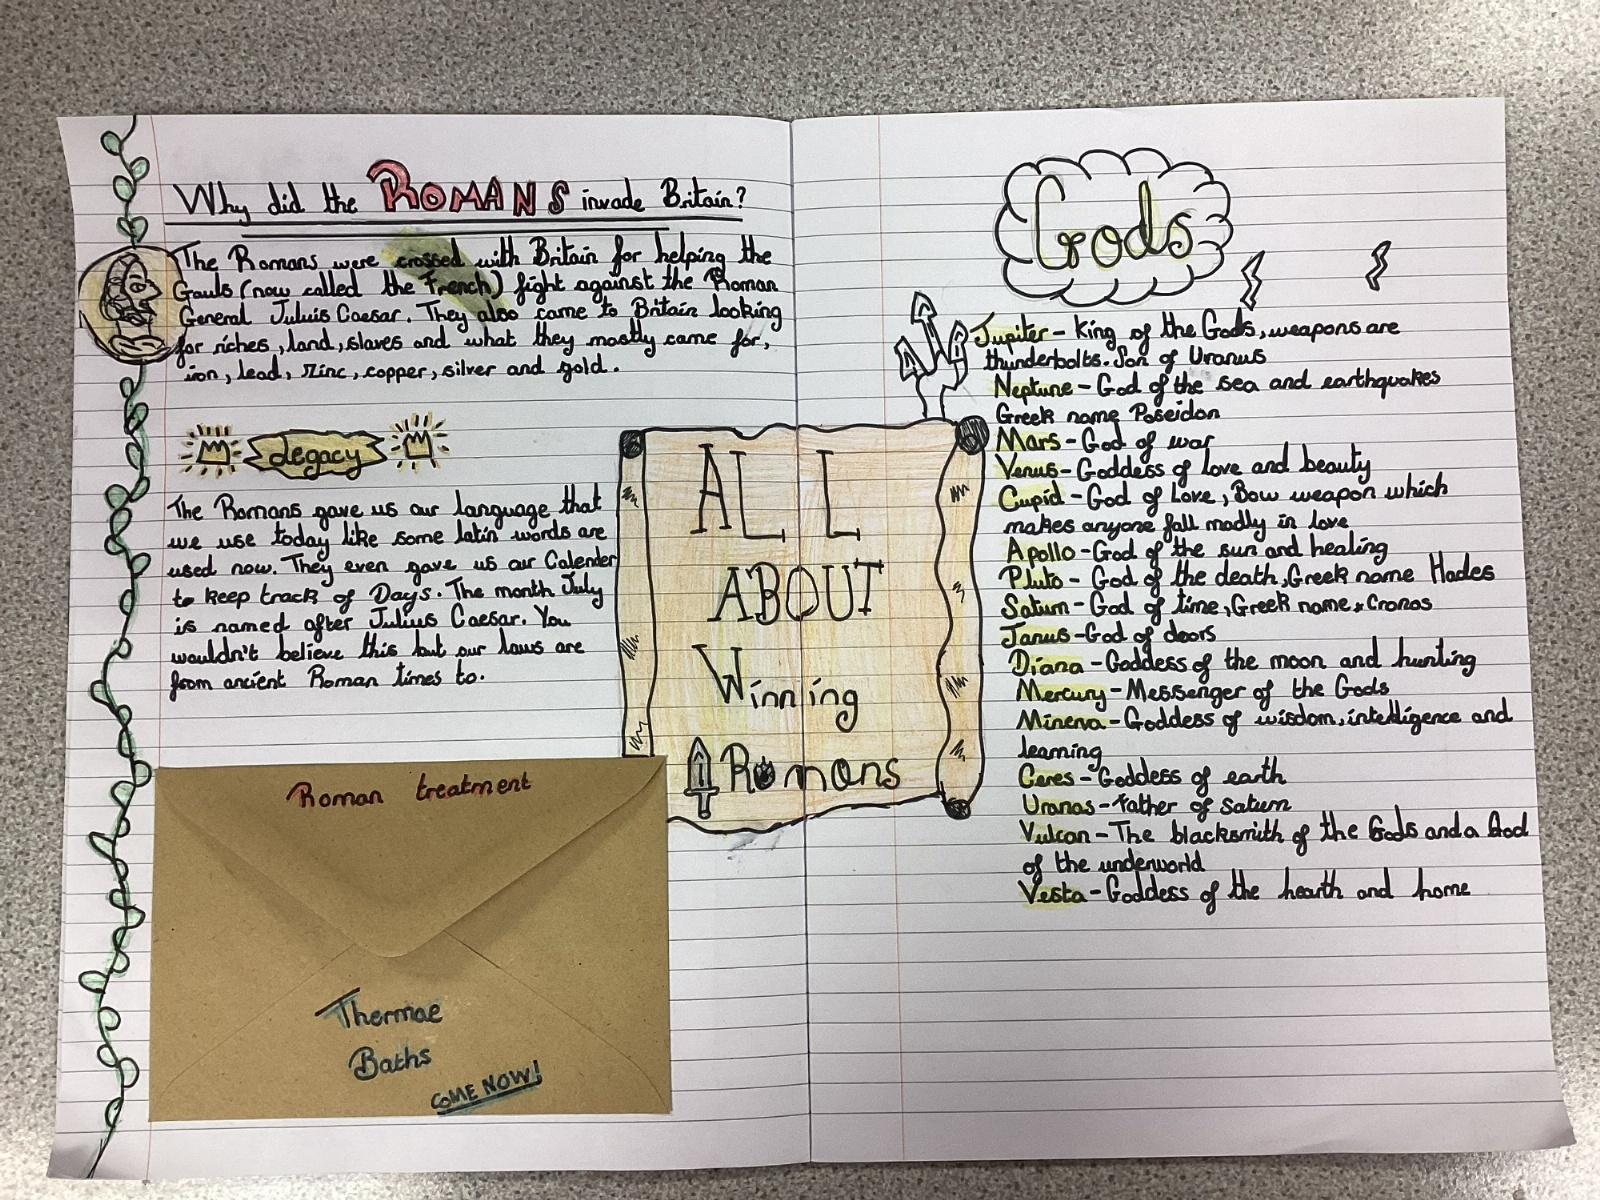 Why did the ROMANS invade Britain?
The Romans were crossed with Britain for helping the
Gauls (now called the French) fight against the Roman
General Juluis Caesar. They also came to Britain looking
for riches, land, slaves and what they mostly came for,
iron, lead, zinc, copper, silver and gold.
Legacy
The Romans gave us our language that
we use today like some latin words are
used now. They even gave us our Calender
to keep track of Days. The month July
is named after Julius Caesar. You
wouldn't believe this but our laws are
from ancient Roman times to.
Roman treatment
Thermae
Baths
COME NOW!
ALL
ABOUT
Winning
Romans
Gods
Jupiter - King of the Gods, weapons are
thunderbolts. Son of Uranus
Neptune - God of the sea and earthquakes
Greek name Poseidon
Mars - God of war
Venus - Goddess of love and beauty
Cupid - God of Love, Bow weapon which
makes anyone fall madly in love
Apollo - God of the sun and healing
Pluto - God of the death, Greek name Hades
Saturn - God of time, Greek name Cronos
Janus - God of doors
Diana - Goddess of the moon and hunting
Mercury - Messenger of the Gods
Minerva - Goddess of wisdom, intelligence and
learning
Ceres - Goddess of earth
Uranas - Father of saturn
Vulcan - The blacksmith of the Gods and a God
of the underworld
Vesta - Goddess of the hearth and home